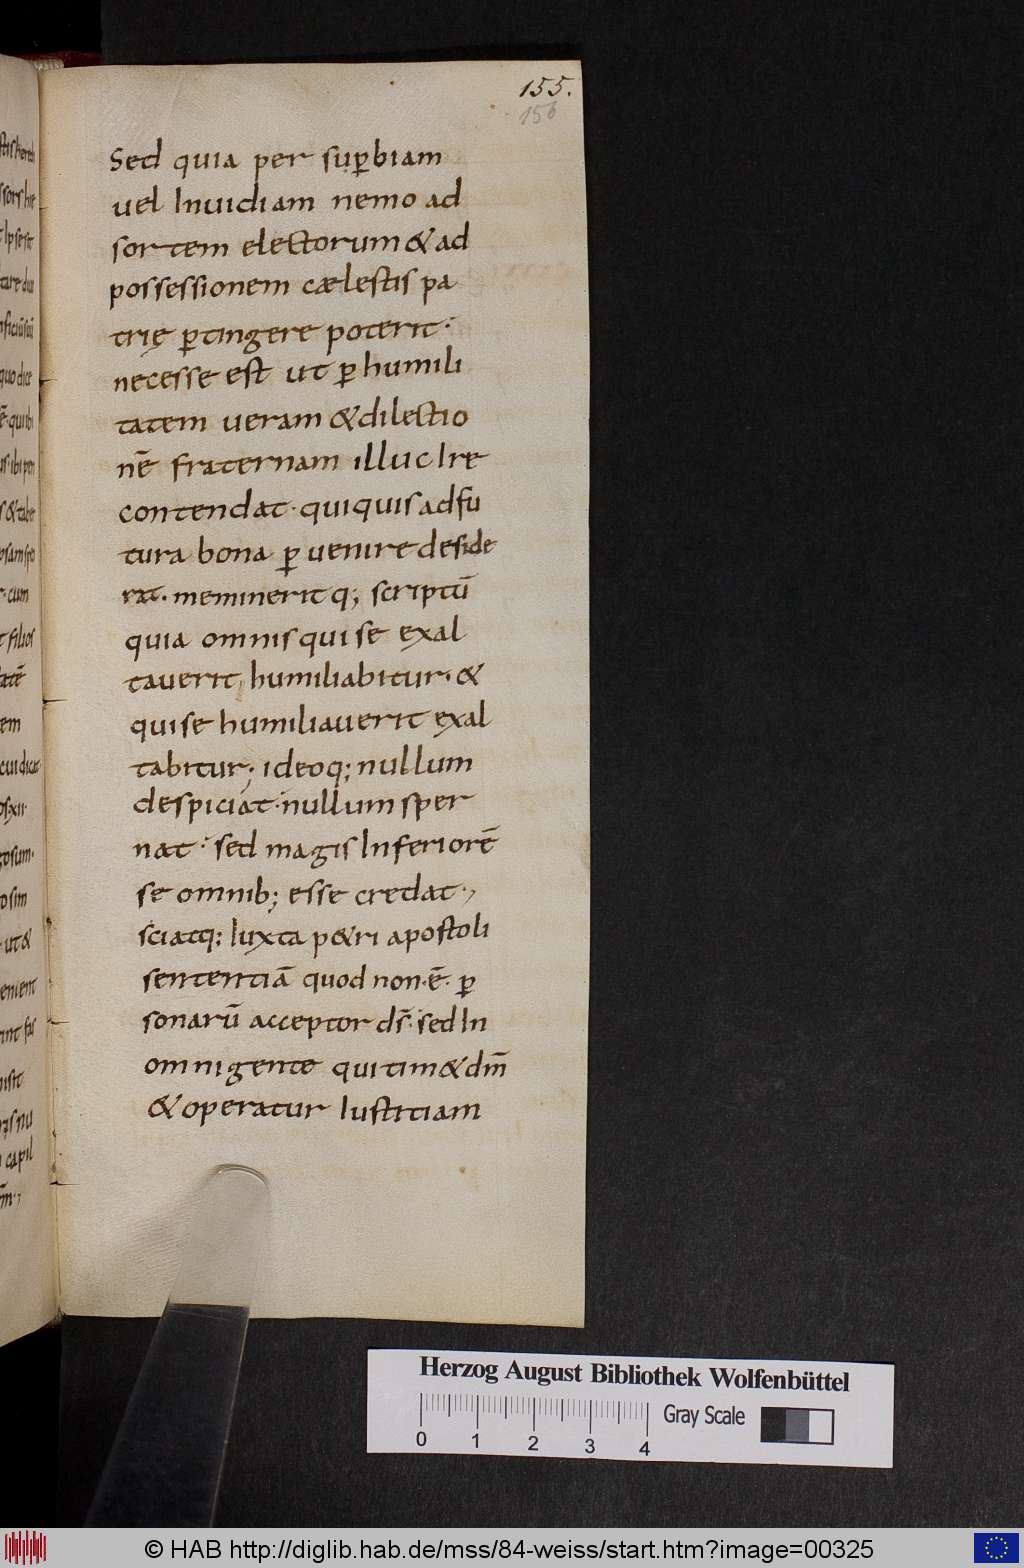 155.
156
Sed quia per sup̄biam
vel Inuidiam nemo ad
sortem electorum & ad
possessionem cælestis pa
trię ꝑtingere poterit·
necesse est ut ꝑ humili
tatem ueram & dilectio
nē fraternam illuc Ire
contendat· quiquis ad fu
tura bona ꝑ uenire deside
rat· meminerit q; scriptū
quia omnis qui se exal
tauerit, humiliabitur· &
qui se humiliauerit exal
tabitur; ideoq; nullum
despiciat· nullum sper
nat· sed magis Inferiorē
se omnib; esse credat·,
sciatq; Iuxta p&ri apostoli
sententiā quod non·ē· ꝑ
sonarū acceptor ds̄· sed In
omni gente qui tim& dm̄
& operatur Iustitiam
quo dice
· cum
filios
em
cui dicat
ut &
capil
Herzog August Bibliothek Wolfenbüttel
0 1 2 3 4
Gray Scale
© HAB http://diglib.hab.de/mss/84-weiss/start.htm?image=00325